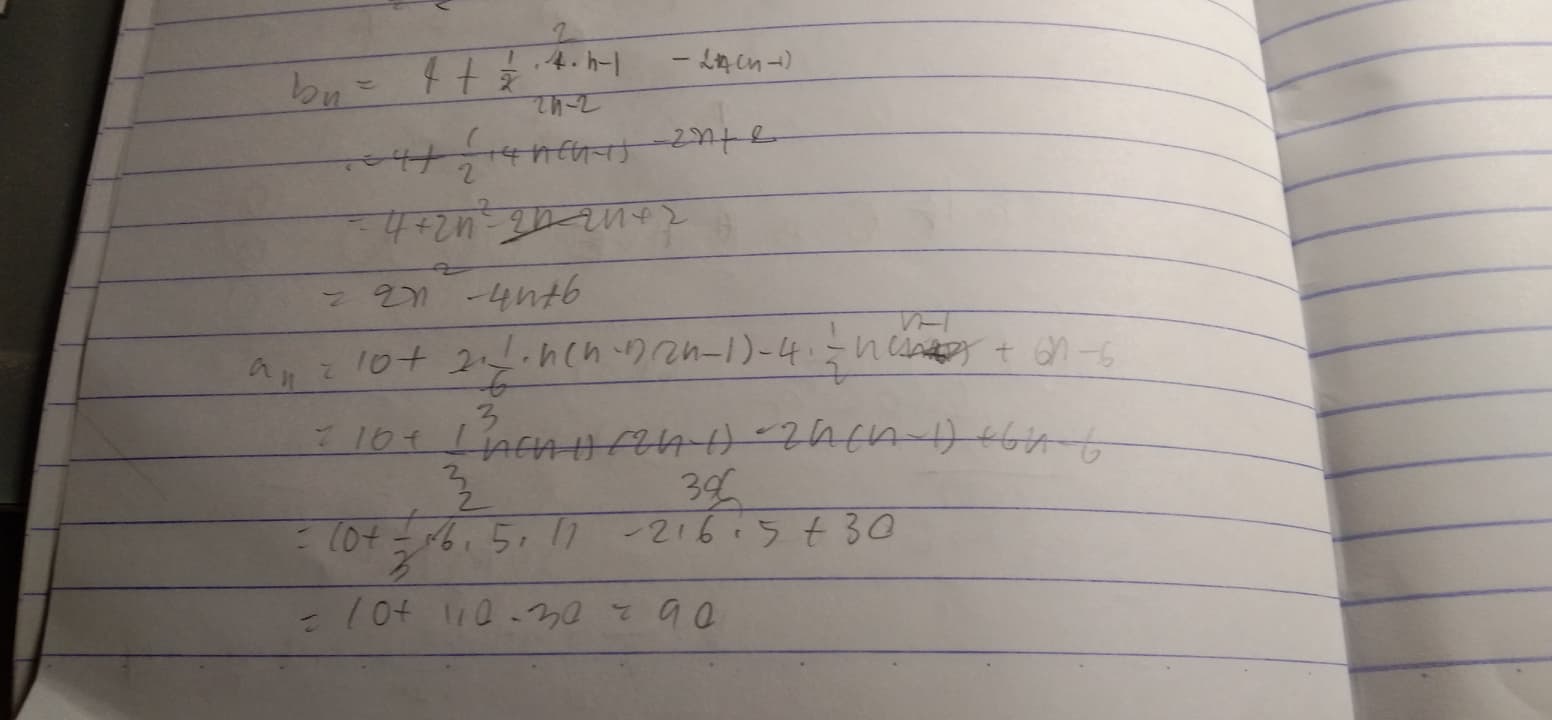 bn = 4 + 1/2 · 4 · n-1 - 2n(n-1)
2
2n-2
= 4 + 1/2 · 4n(n-1) - 2n + 2
= 4 + 2n² - 2n - 2n + 2
= 2n² - 4n + 6
an = 10 + 2 · 1/6 · n(n-1)(2n-1) - 4 · 1/2 n(n-1) + 6n - 6
3
= 10 + 1/3 n(n-1)(2n-1) - 2n(n-1) + 6n - 6
2
= 10 + 1/3 · 6 · 5 · 11 - 2 · 6 · 5 + 30
= 10 + 110 - 30 = 90